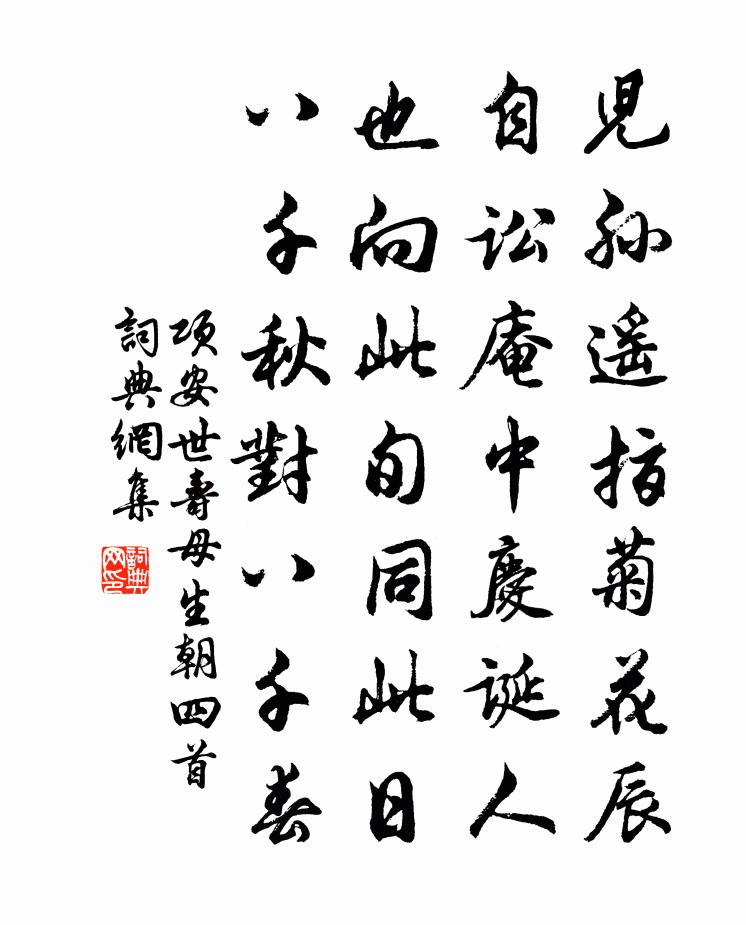 兒孫遥指菊花辰
自訟庵中慶誕人
也向此旬同此日
八千秋對八千春
項安世壽母生朝四首
詞典網集
詞典
网印